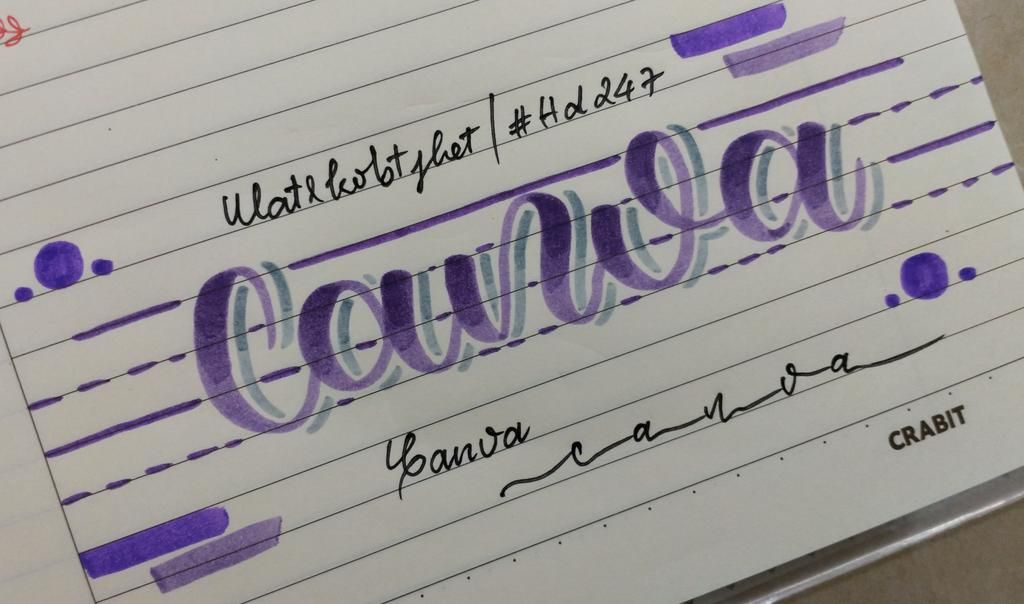 #Hd247
Canva
Canva
canva
CRABIT